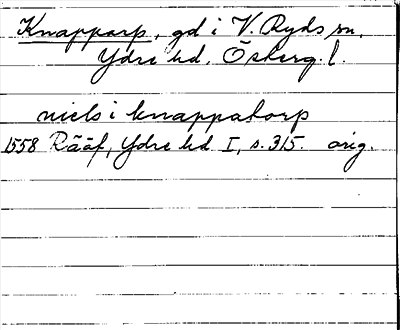 Knapparp, gd i V. Ryds sn,
Ydre hd. Österg. l.
niels i knappatorp
1558 Rääf, Ydre hd I, s. 315. orig.